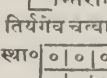 तिर्यगेव चत्वा
स्था० ० ० ०